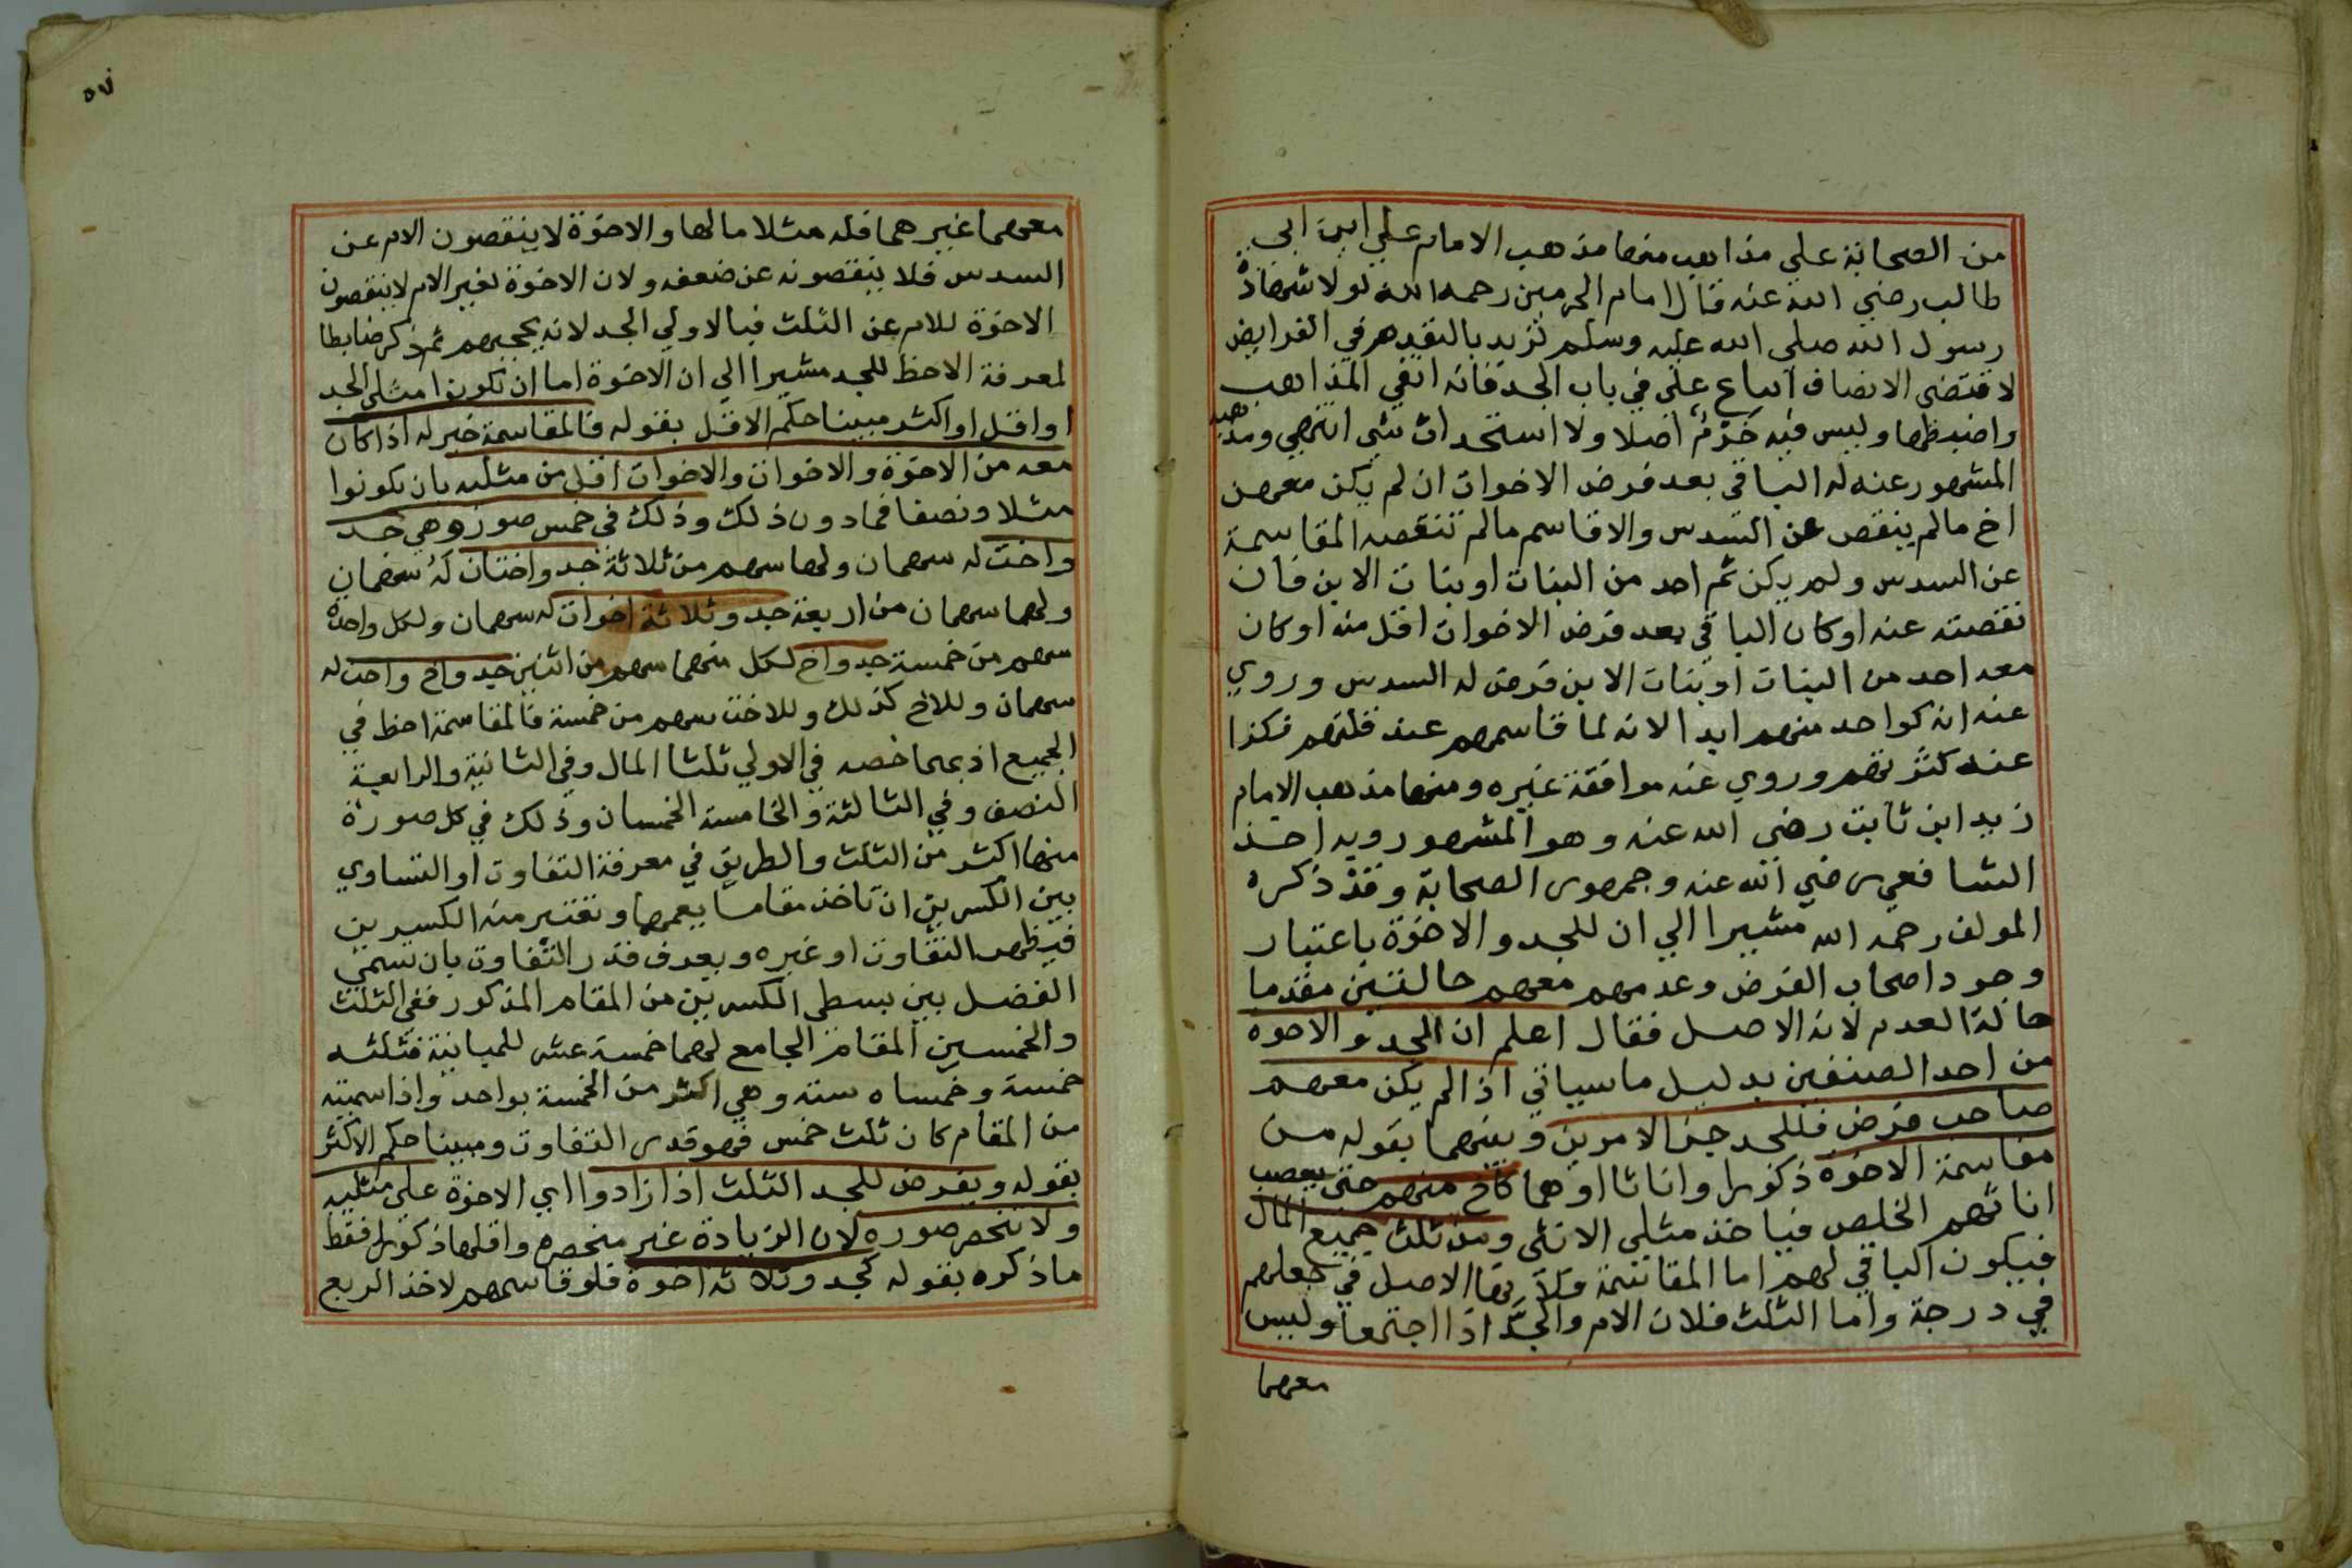 من الصحابة علي مذاهب منها مذهب الامام علي ابن ابي
طالب رضي الله عنه قال امام الحرمين رحمه الله لولا شهادة
رسول الله صلي الله عليه وسلم لزيد بالتقدم في الفرايض
لاقتضى الانصاف اتباع علي في باب الجد فانه انقي المذاهب
واضبطها وليس فيه خرم اصلا ولا استحداث شي انتهي ومذهبه
المشهور عنه له الباقي بعد فرض الاخوات ان لم يكن معهن
اخ مالم ينقص عن السدس والا قاسم مالم تنقصه المقاسمة
عن السدس ولم يكن ثم احد من البنات او بنات الابن فان
نقصته عنه او كان الباقي بعد فرض الاخوات اقل منه او كان
معه احد من البنات او بنات الابن فرض له السدس وروي
عنه انه كواحد منهم ابدا لانه لما قاسمهم عند قلتهم فكذا
عند كثرتهم وروي عنه موافقة غيره ومنها مذهب الامام
زيد ابن ثابت رضي الله عنه وهو المشهور وبه اخذ
الشافعي رضي الله عنه وجمهور الصحابة وقد ذكره
المولف رحمه الله مشيرا الي ان للجد والاخوة باعتبار
وجود اصحاب الفرض وعدمهم معهم حالتين مقدما
حالة العدم لانه الاصل فقال اعلم ان الجد والاخوة
من احد الصنفين بدليل ماسياتي اذا لم يكن معهم
صاحب فرض فللجد خير الامرين وبينهما بقوله من
مقاسمة الاخوة ذكورا واناثا او هما كاخ منهم حتى يعصب
اناثهم الخلص فياخذ مثلي الانثى ومن ثلث جميع المال
فيكون الباقي لهم اما المقاسمة فلانها الاصل في جعلهم
في درجة واما الثلث فلان الام والجد اذا اجتمعا وليس
معهما
٥٧
معهما غيرهما فله مثلا مالها والاخوة لا ينقصون الام عن
السدس فلا ينقصونه عن ضعفه ولان الاخوة لغير الام لا ينقصون
الاخوة للام عن الثلث فبالاولي الجد لانه يحجبهم ثم ذكر ضابطا
لمعرفة الاحظ للجد مشيرا الي ان الاخوة اما ان تكونوا مثلى الجد
او اقل او اكثر مبينا حكم الاقل بقوله فالمقاسمة خير له اذا كان
معه من الاخوة والاخوات والاخوات اقل من مثليه بان يكونوا
مثلا ونصفا فمادون ذلك وذلك في خمس صور وهي جد
واخت له سهمان ولها سهم من ثلاثة جد واختان له سهمان
ولهما سهمان من اربعة جد وثلاثة اخوات له سهمان ولكل واحدة
سهم من خمسة جد واخ لكل منهما سهم من اثنين جد واخ واخت له
سهمان وللاخ كذلك وللاخت سهم من خمسة فالمقاسمة احظ في
الجميع اذ بها خصه في الاولي ثلثا المال وفي الثانية والرابعة
النصف وفي الثالثة والخامسة الخمسان وذلك في كل صورة
منها اكثر من الثلث والطريق في معرفة التفاوت او التساوي
بين الكسرين ان تاخذ مقاما يعمهما وتعتبر منه الكسرين
فيظهر التفاوت او غيره ويعرف قدر التفاوت بان تسمي
الفضل بين بسطي الكسرين من المقام المذكور ففي الثلث
والخمسين المقام الجامع لهما خمسة عشر للمباينة فثلثه
خمسة وخمساه ستة وهي اكثر من الخمسة بواحد واذا سميته
من المقام كان ثلث خمس فهو قدر التفاوت ومبينا حكم الاكثر
بقوله ويفرض للجد الثلث اذا زادوا اي الاخوة على مثليه
ولا تنحصر صوره لان الزيادة غير منحصره واقلها ذكورا فقط
ماذكره بقوله كجد وثلاثه اخوة فلو قاسمهم لاخذ الربع